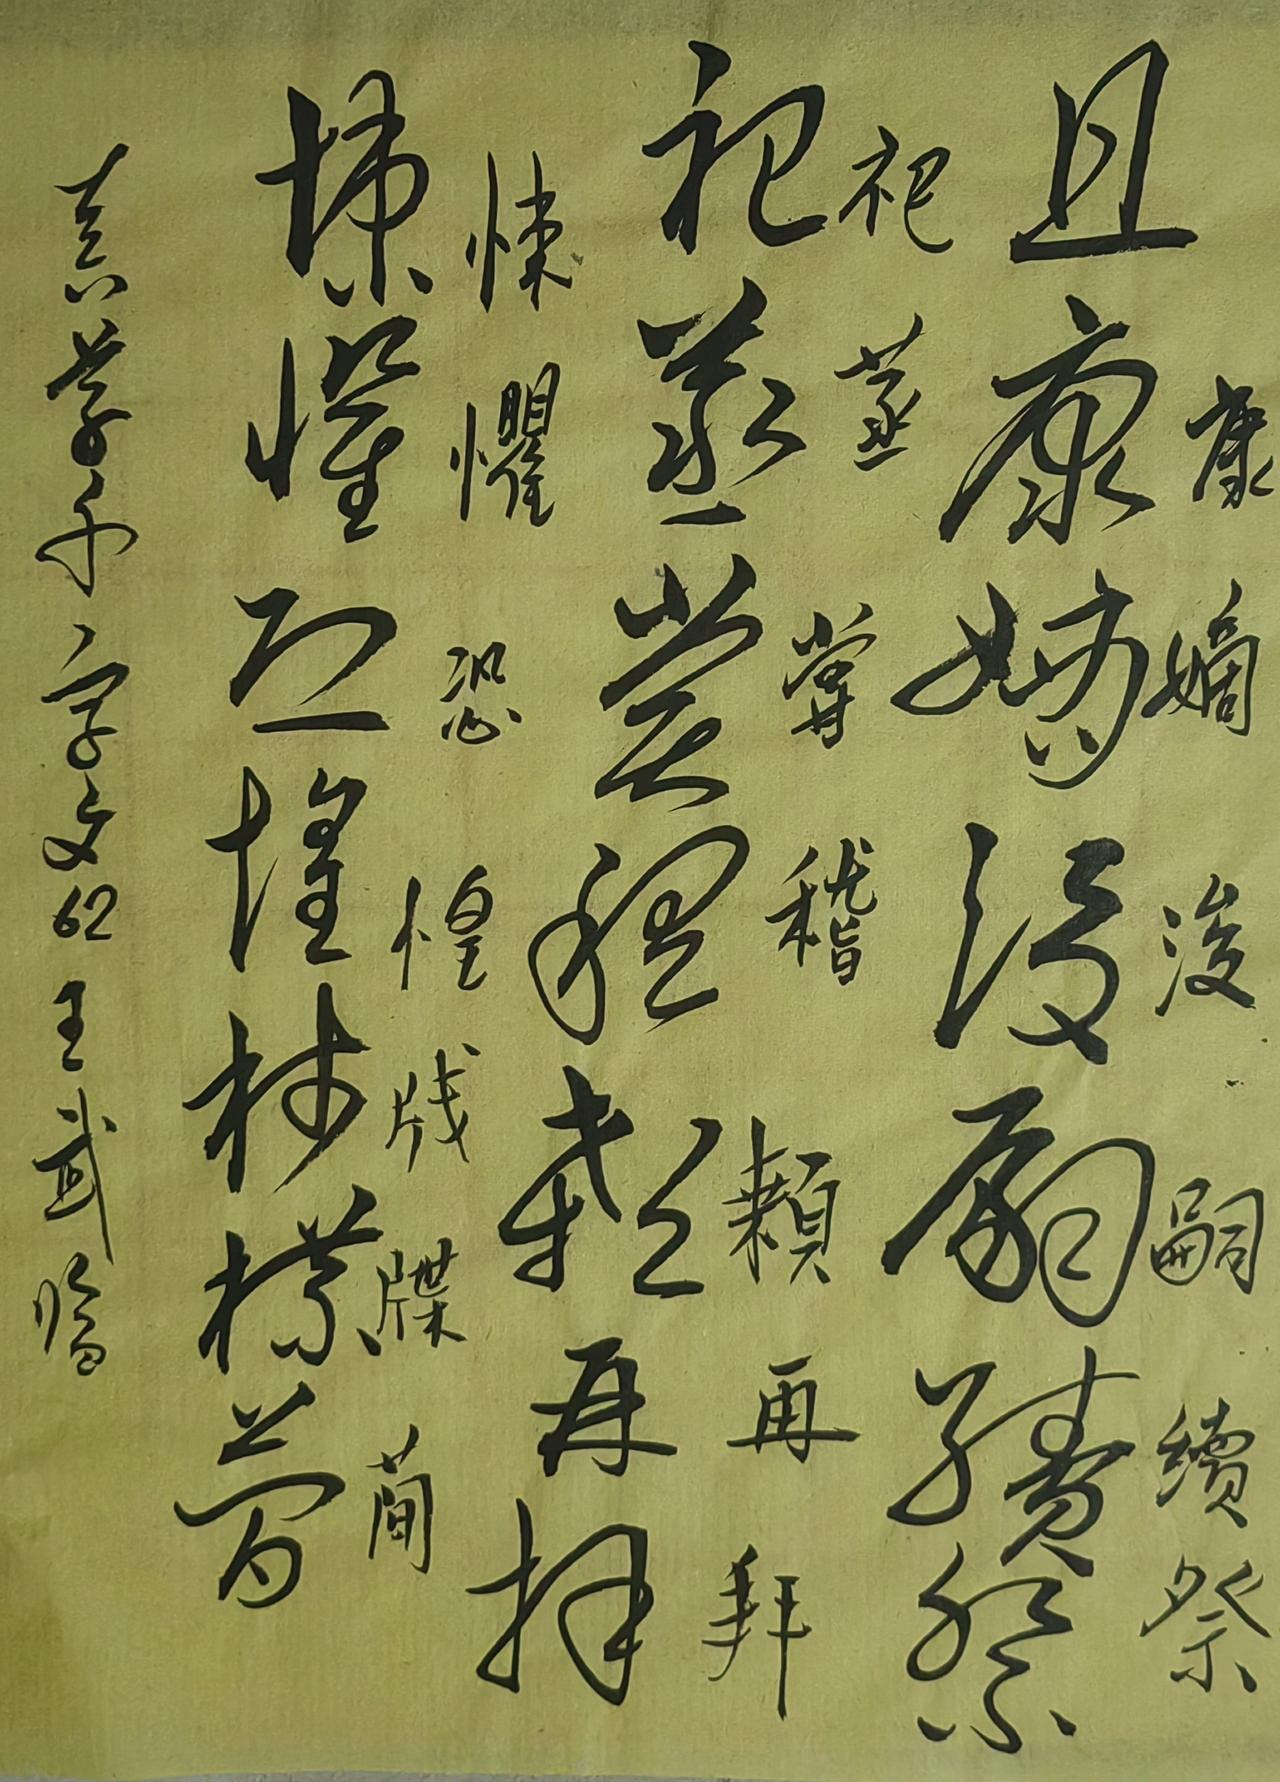 康嫡後嗣續祭
且康嫡後嗣續祭
祀蒸嘗稽顙再拜
祀蒸嘗稽顙再拜
悚懼恐惶牋牒簡
悚懼恐惶牋牒簡
真草千字文62王武臨